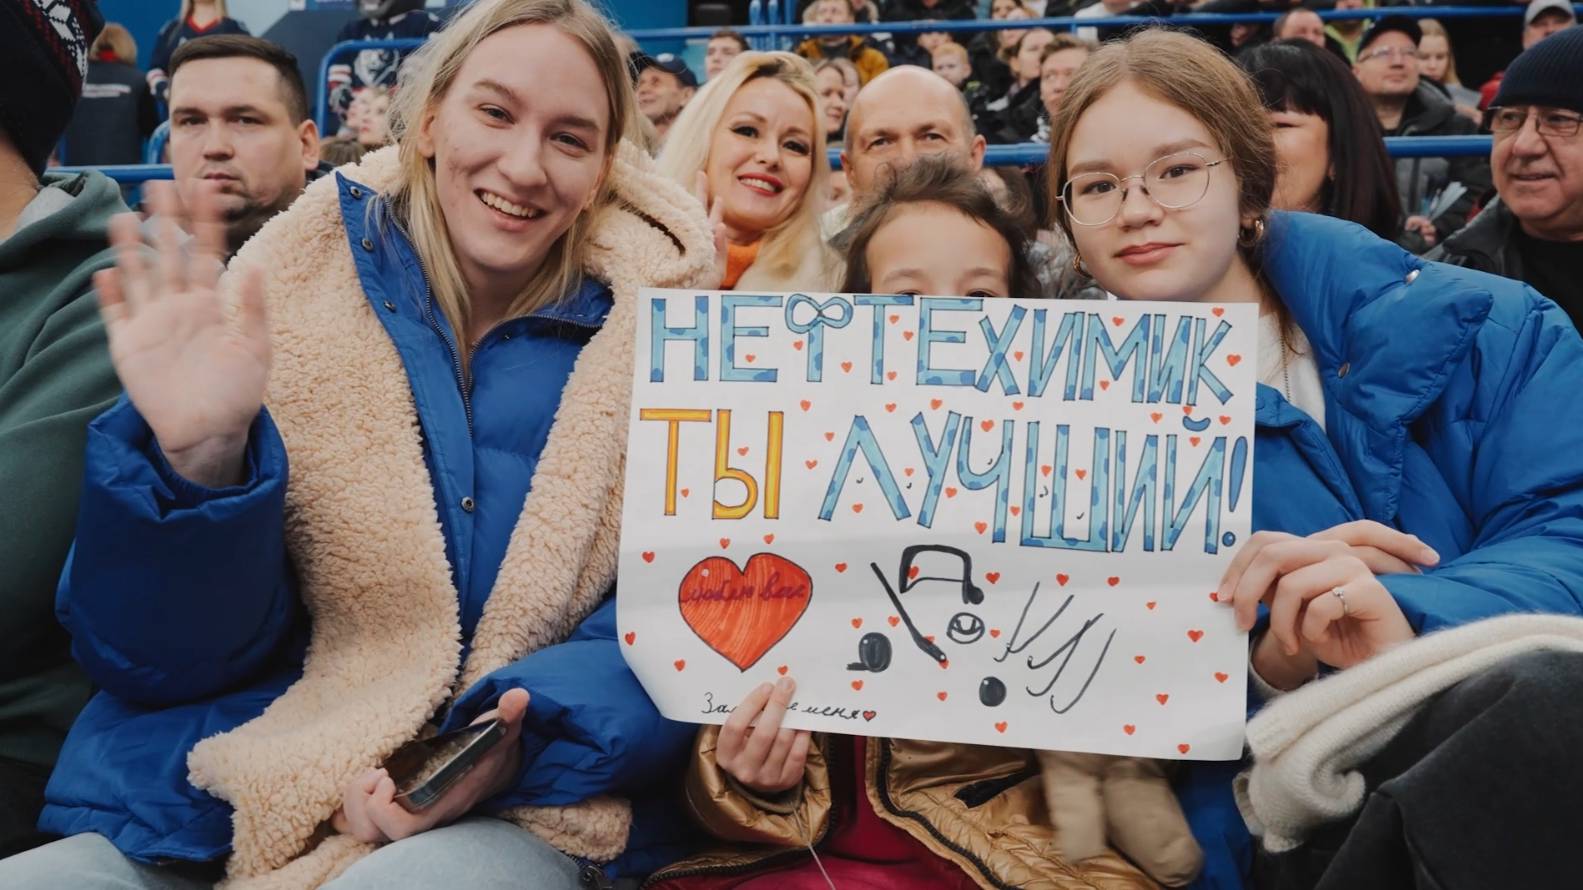 НЕФТЕХИМИК
ТЫ ЛУЧШИЙ!
Люблю вас
меня